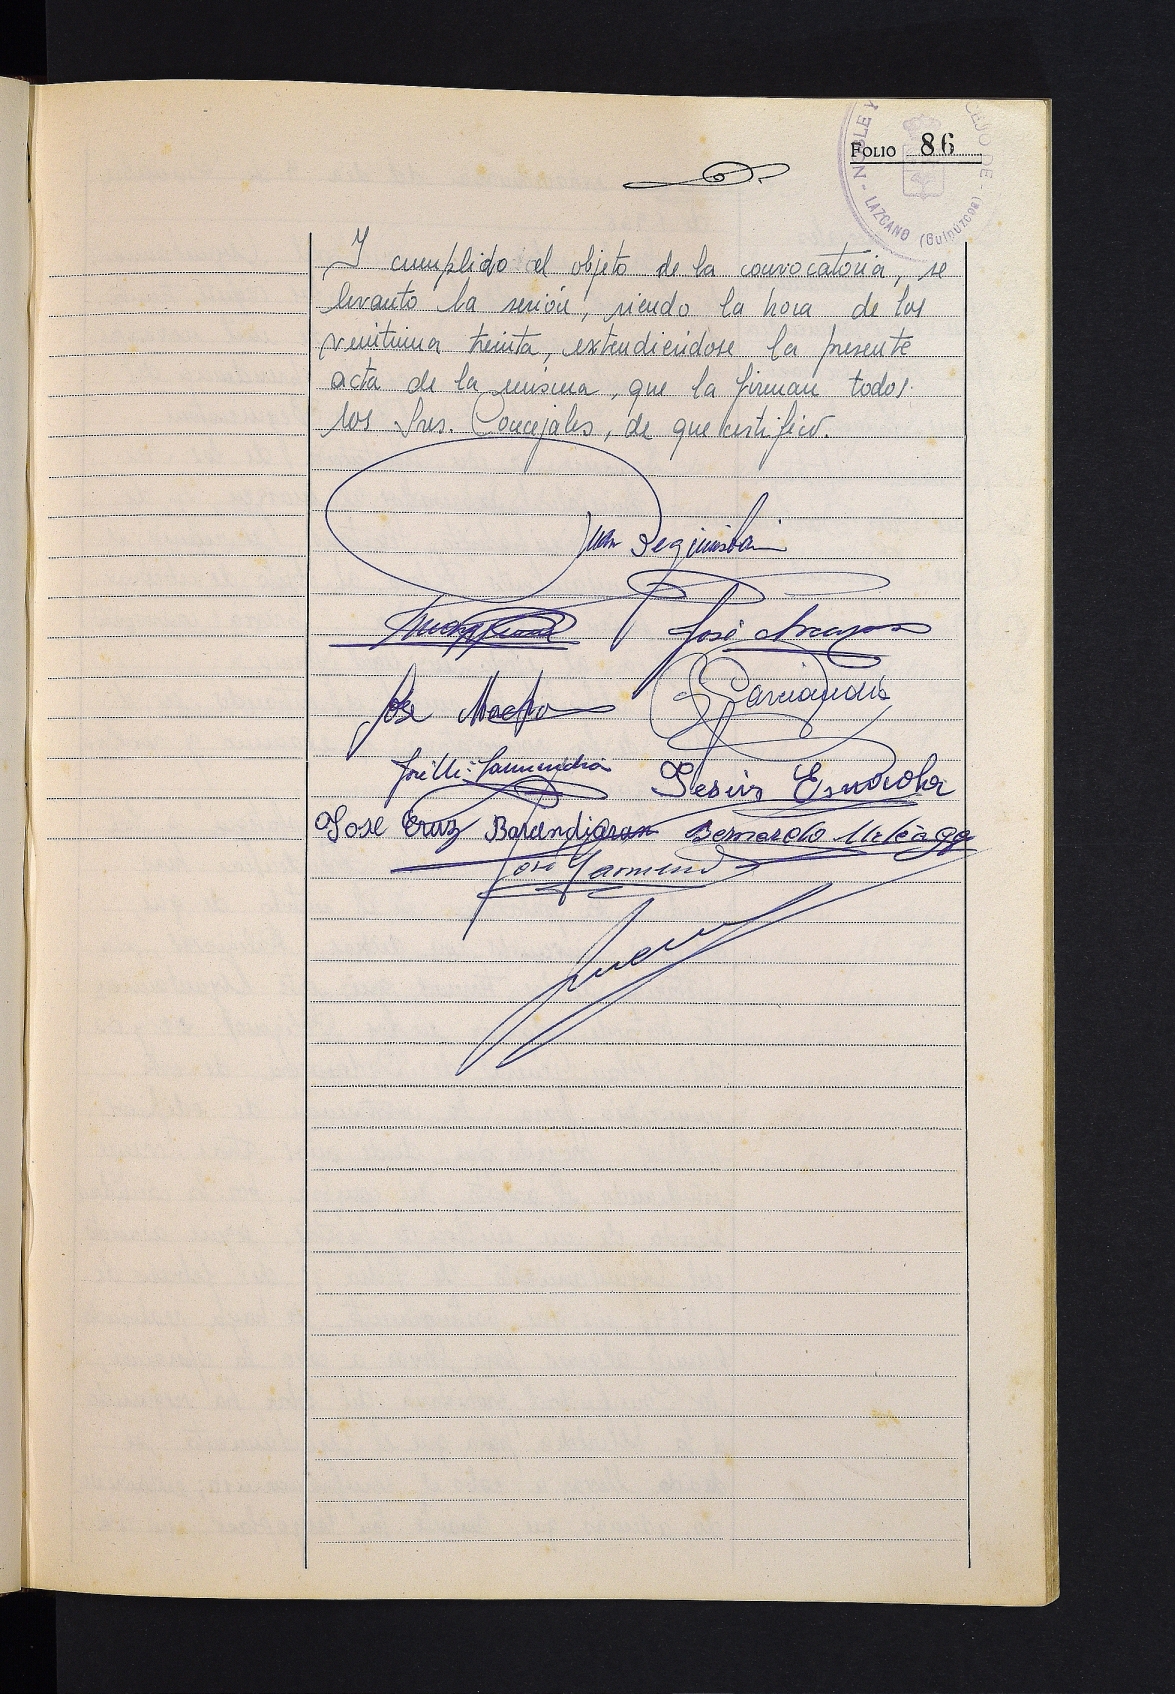 FOLIO 86
NOBLE Y
CEJO DE -
- LAZCANO (Guipúzcoa)
Y cumplido el objeto de la convocatoria, se
levanto la sesión, siendo la hora de los
veintiuna treinta, extendiendose la presente
acta de la misma, que la firman todos
los Sres. Concejales, de que certifico.
Juan
José
José
Garciandia
José Mi.
Jesús Esnaola
José Cruz Barandiaran Bernardo
José Garmendia